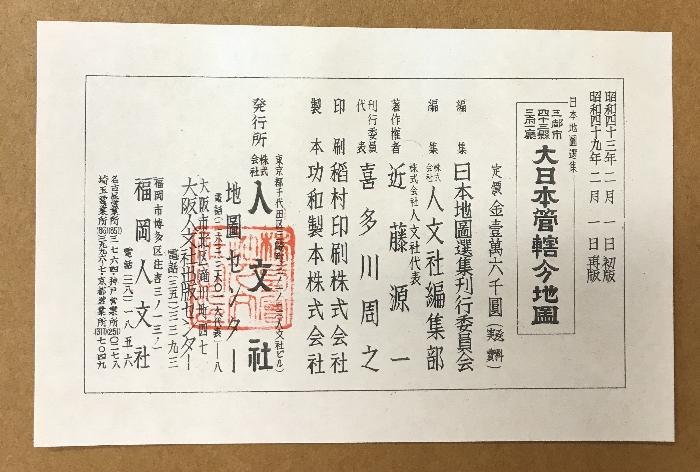 昭和四十三年二月一日初版
昭和四十九年二月一日再版
日本地圖選集
三都市
四十三縣
大日本管轄分地圖
定價金壹萬六千圓
編集日本地圖選集刊行委員会
編集株式会社人文社編集部
著作権者株式会社人文社代表近藤源一
刊行委員代表喜多川周之
印刷稻村印刷株式会社
製本功和製本株式会社
発行所株式会社人文社
東京都千代田区
地圖センター
大阪市北区
大阪人文社出版センター
福岡市博多区住吉三ノ一三ノ一
福岡人文社
名古屋営業所
神戸営業所
埼玉営業所
京都営業所